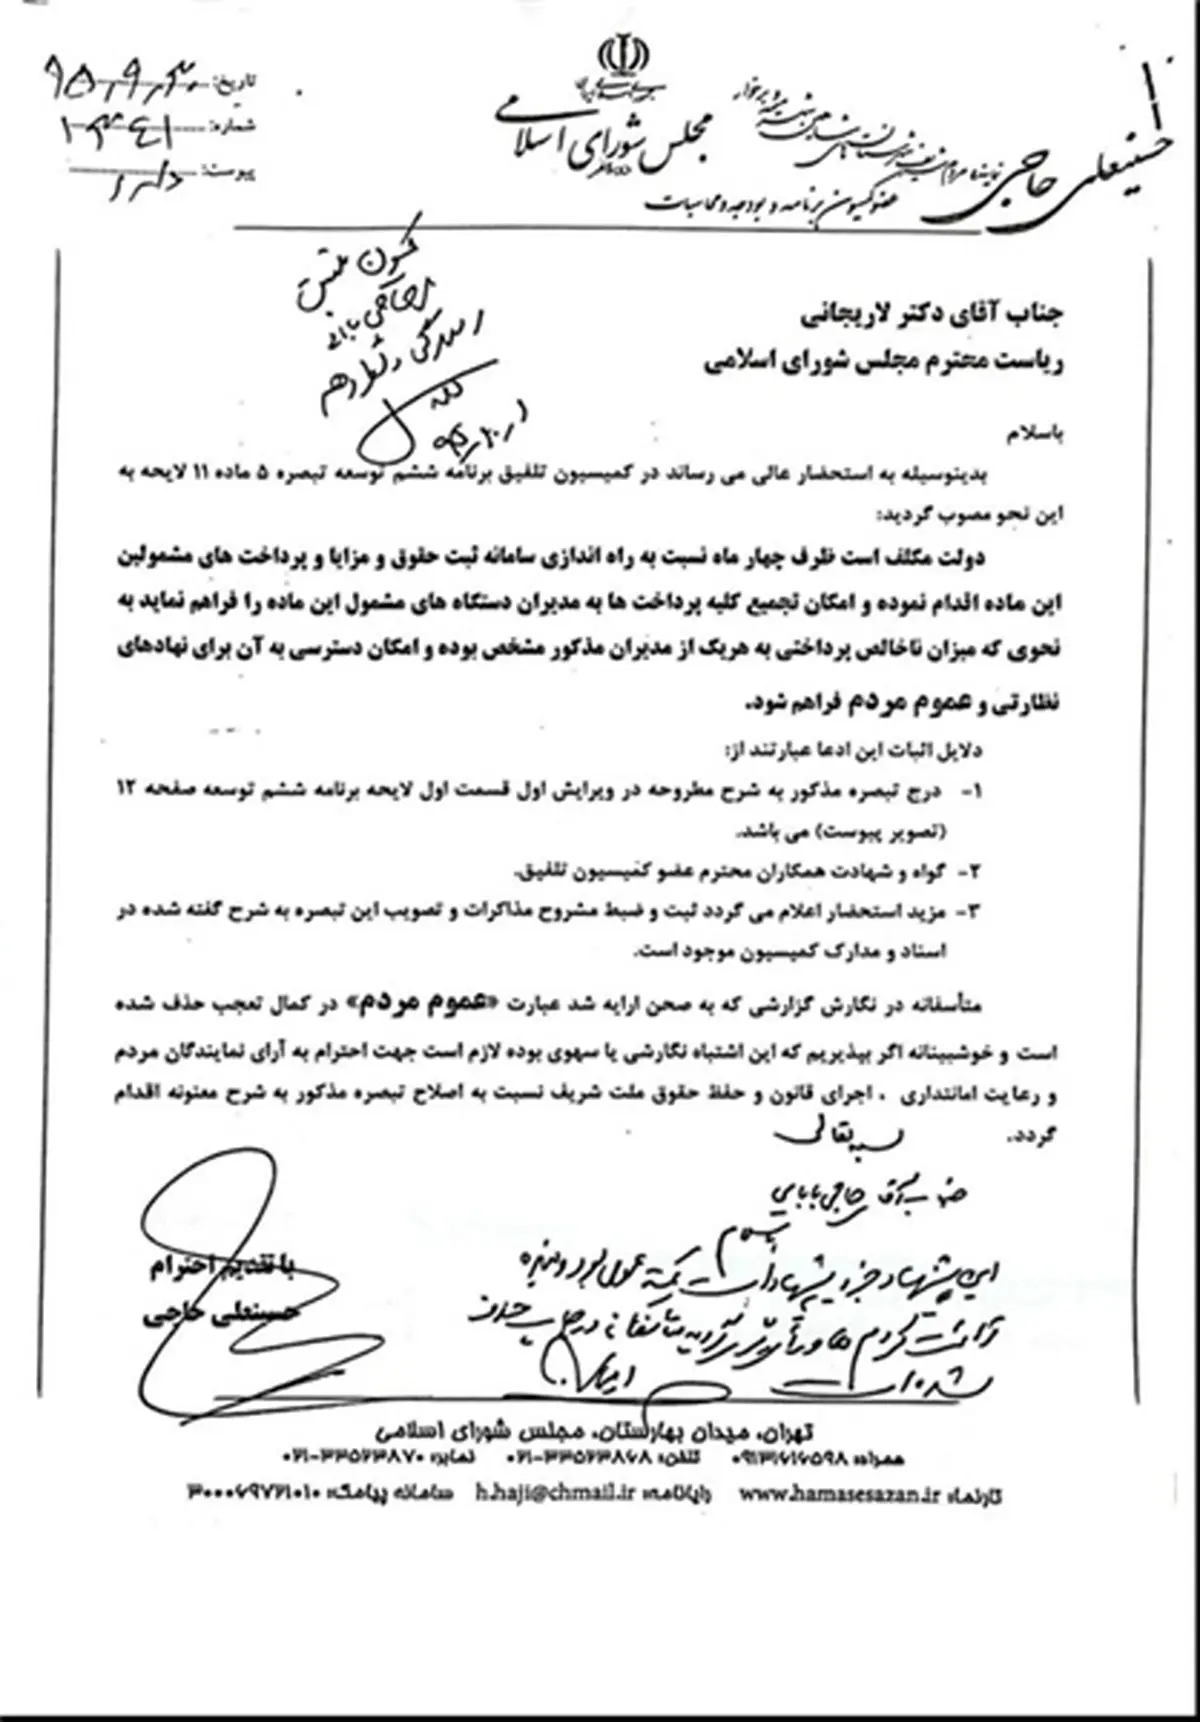 تاریخ: ۹۵/۹/۳۰
شماره: ۱۳۴۶۱
پیوست: دارد
مجلس شورای اسلامی
حسینعلی حاجی
نماینده مردم شریف
عضو کمیسیون برنامه و بودجه و محاسبات
جناب آقای دکتر لاریجانی
ریاست محترم مجلس شورای اسلامی
باسلام
بدینوسیله به استحضار عالی می رساند در کمیسیون تلفیق برنامه ششم توسعه تبصره ۵ ماده ۱۱ لایحه به
این نحو مصوب گردید:
دولت مکلف است ظرف چهار ماه نسبت به راه اندازی سامانه ثبت حقوق و مزایا و پرداخت های مشمولین
این ماده اقدام نموده و امکان تجمیع کلیه پرداخت ها به مدیران دستگاه های مشمول این ماده را فراهم نماید به
نحوی که میزان ناخالص پرداختی به هریک از مدیران مذکور مشخص بوده و امکان دسترسی به آن برای نهادهای
نظارتی و عموم مردم فراهم شود.
دلایل اثبات این ادعا عبارتند از:
۱- درج تبصره مذکور به شرح مطروحه در ویرایش اول قسمت اول لایحه برنامه ششم توسعه صفحه ۱۲
(تصویر پیوست) می باشد.
۲- گواه و شهادت همکاران محترم عضو کمیسیون تلفیق.
۳- مزید استحضار اعلام می گردد ثبت و ضبط مشروح مذاکرات و تصویب این تبصره به شرح گفته شده در
اسناد و مدارک کمیسیون موجود است.
متأسفانه در نگارش گزارشی که به صحن ارایه شد عبارت «عموم مردم» در کمال تعجب حذف شده
است و خوشبینانه اگر بپذیریم که این اشتباه نگارشی یا سهوی بوده لازم است جهت احترام به آرای نمایندگان مردم
و رعایت امانتداری ، اجرای قانون و حفظ حقوق ملت شریف نسبت به اصلاح تبصره مذکور به شرح معنونه اقدام
گردد.
بسمه تعالی
جناب آقای حاجی بابایی
با سلام
این پیشنهاد جزو پیشنهادات
شده است
با تقدیم احترام
حسینعلی حاجی
تهران، میدان بهارستان، مجلس شورای اسلامی
همراه: ۰۹۱۳۱۶۱۶۵۹۸ تلفن: ۳۳۵۶۳۸۶۸-۰۲۱ نمابر: ۳۳۵۶۳۸۷۰-۰۲۱
تارنما: www.hamasesazan.ir رایانامه: h.haji@chmail.ir سامانه پیامک: ۳۰۰۰۶۹۷۲۱۰۱۰